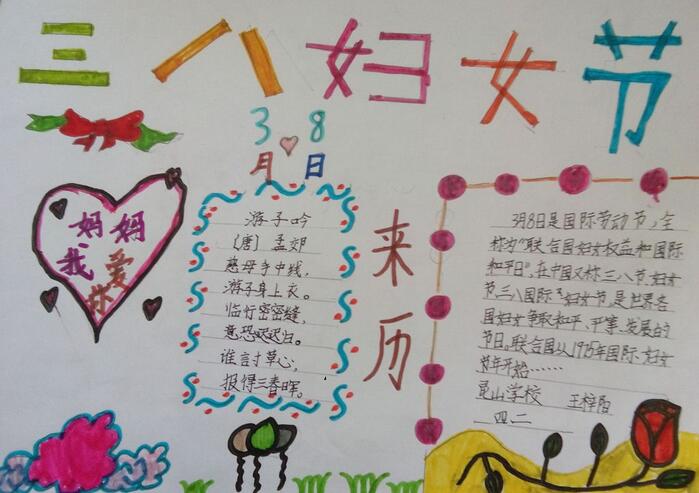 三八妇女节
3 8
月 日
妈妈
我爱
你
游子吟
〔唐〕孟郊
慈母手中线,
游子身上衣。
临行密密缝,
意恐迟迟归。
谁言寸草心,
报得三春晖。
来历
3月8日是国际劳动节,全
称为“联合国妇女权益和国际
和平日”,在中国又称三八节、妇女
节、三八国际妇女节,是世界各
国妇女争取和平、平等、发展的
节日。联合国从1975年国际妇女
节年开始……
昆山学校 王梓阳
四二